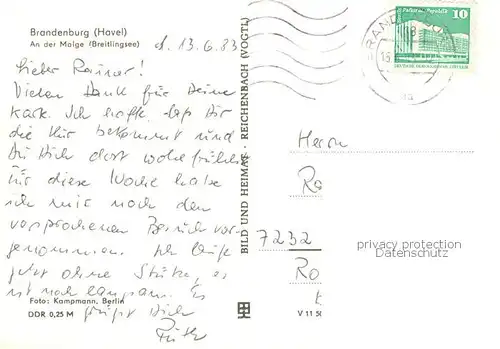 Brandenburg (Havel)
An der Malge (Breitlingsee)
d. 13.6.83
Lieber Rainer!
Vielen Dank für Deine
Karte. Ich hoffe, daß Dir
die Kur bekommt und
Du Dich dort wohlfühlst.
Für diese Woche habe
ich mir noch den
versprochenen Besuch vor-
genommen. Ich laufe
jetzt ohne Stütze, es
ist noch langsam. Es
grüßt Dich
Ruth
Foto: Kampmann, Berlin
DDR 0,25 M
BILD UND HEIMAT · REICHENBACH (VOGTL)
V 11 50
Palast der Republik
10
DEUTSCHE DEMOKRATISCHE REPUBLIK
BRAND
Herrn
Ra
7232
Ro
privacy protection
Datenschutz